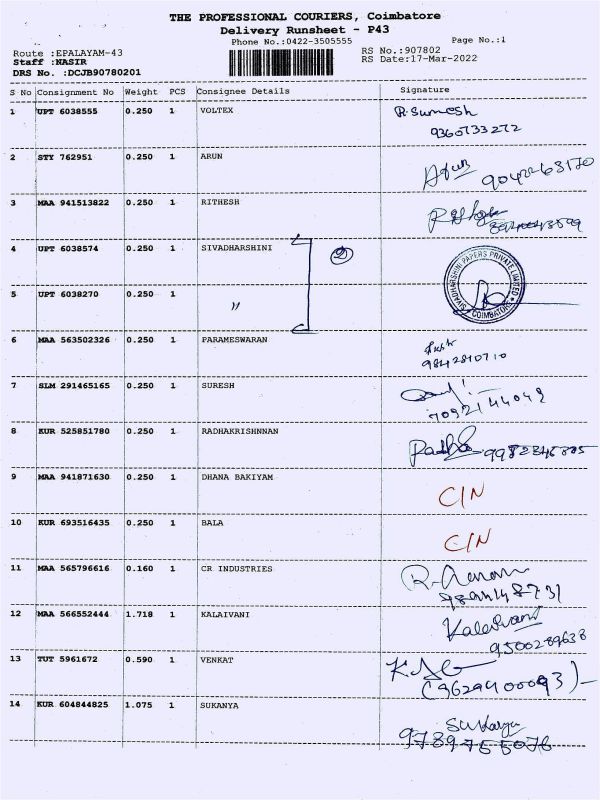 THE PROFESSIONAL COURIERS, Coimbatore
Delivery Runsheet - P43
Phone No.:0422-3505555 Page No.:1
Route :EPALAYAM-43 RS No.:907802
Staff :NASIR RS Date:17-Mar-2022
DRS No. :DCJB90780201
S No Consignment No Weight PCS Consignee Details Signature
1 UPT 6038555 0.250 1 VOLTEX R.Sumesh
9360733272
2 STY 762951 0.250 1 ARUN Arun
9042263170
3 MAA 941513822 0.250 1 RITHESH
4 UPT 6038574 0.250 1 SIVADHARSHINI 2
SIVADHARSHINI PAPERS PRIVATE LIMITED
COIMBATORE
5 UPT 6038270 0.250 1 "
6 MAA 563502326 0.250 1 PARAMESWARAN
9842810710
7 SLM 291465165 0.250 1 SURESH
7092144049
8 KUR 525851780 0.250 1 RADHAKRISHNNAN Radha
9 MAA 941871630 0.250 1 DHANA BAKIYAM C/N
10 KUR 693516435 0.250 1 BALA C/N
11 MAA 565796616 0.160 1 CR INDUSTRIES
12 MAA 566552444 1.718 1 KALAIVANI Kalaivani
9500289638
13 TUT 5961672 0.590 1 VENKAT
(9629400093)-
14 KUR 604844825 1.075 1 SUKANYA Sukanya
9789755076